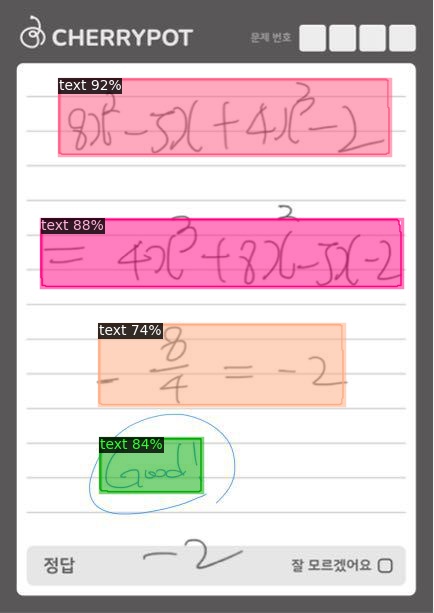 CHERRYPOT 문제 번호
text 92%
8x² - 5x + 4x³ - 2
text 88%
= 4x³ + 8x² - 5x - 2
text 74%
- 8/4 = -2
text 84%
Good!
정답 -2 잘 모르겠어요